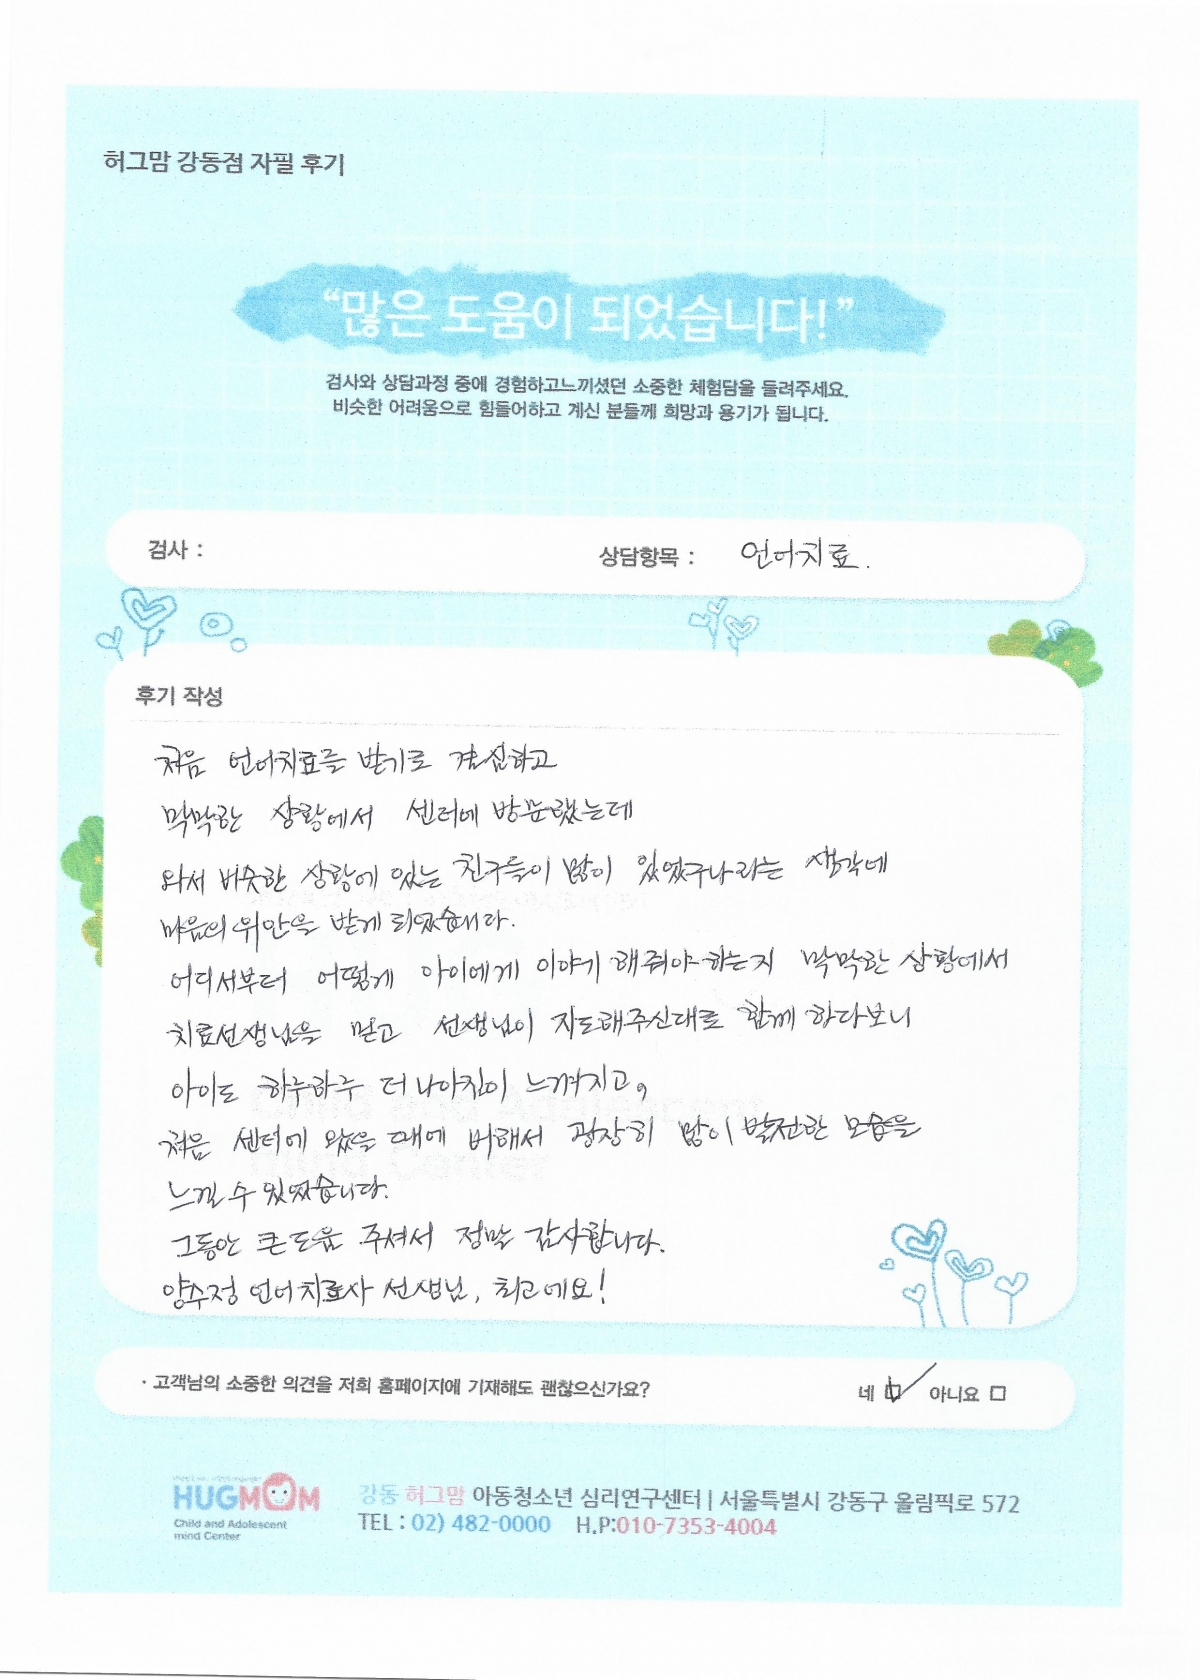 허그맘 강동점 자필 후기
“많은 도움이 되었습니다!”
검사와 상담과정 중에 경험하고느끼셨던 소중한 체험담을 들려주세요.
비슷한 어려움으로 힘들어하고 계신 분들께 희망과 용기가 됩니다.
검사 : 상담항목 : 언어치료.
후기 작성
처음 언어치료를 받기로 결심하고
막막한 상황에서 센터에 방문했는데
와서 비슷한 상황에 있는 친구들이 많이 있었구나라는 생각에
마음의 위안을 받게 되었습니다.
어디서부터 어떻게 아이에게 이야기 해줘야 하는지 막막한 상황에서
치료선생님을 믿고 선생님이 지도해주신대로 함께 하다보니
아이도 하루하루 더 나아짐이 느껴지고,
처음 센터에 왔을 때에 비해서 굉장히 많이 발전한 모습을
느낄 수 있었습니다.
그동안 큰 도움 주셔서 정말 감사합니다.
양수정 언어치료사 선생님, 최고예요!
· 고객님의 소중한 의견을 저희 홈페이지에 기재해도 괜찮으신가요? 네 아니요
HUGMOM
Child and Adolescent
mind Center
강동 허그맘 아동청소년 심리연구센터 | 서울특별시 강동구 올림픽로 572
TEL : 02) 482-0000 H.P:010-7353-4004